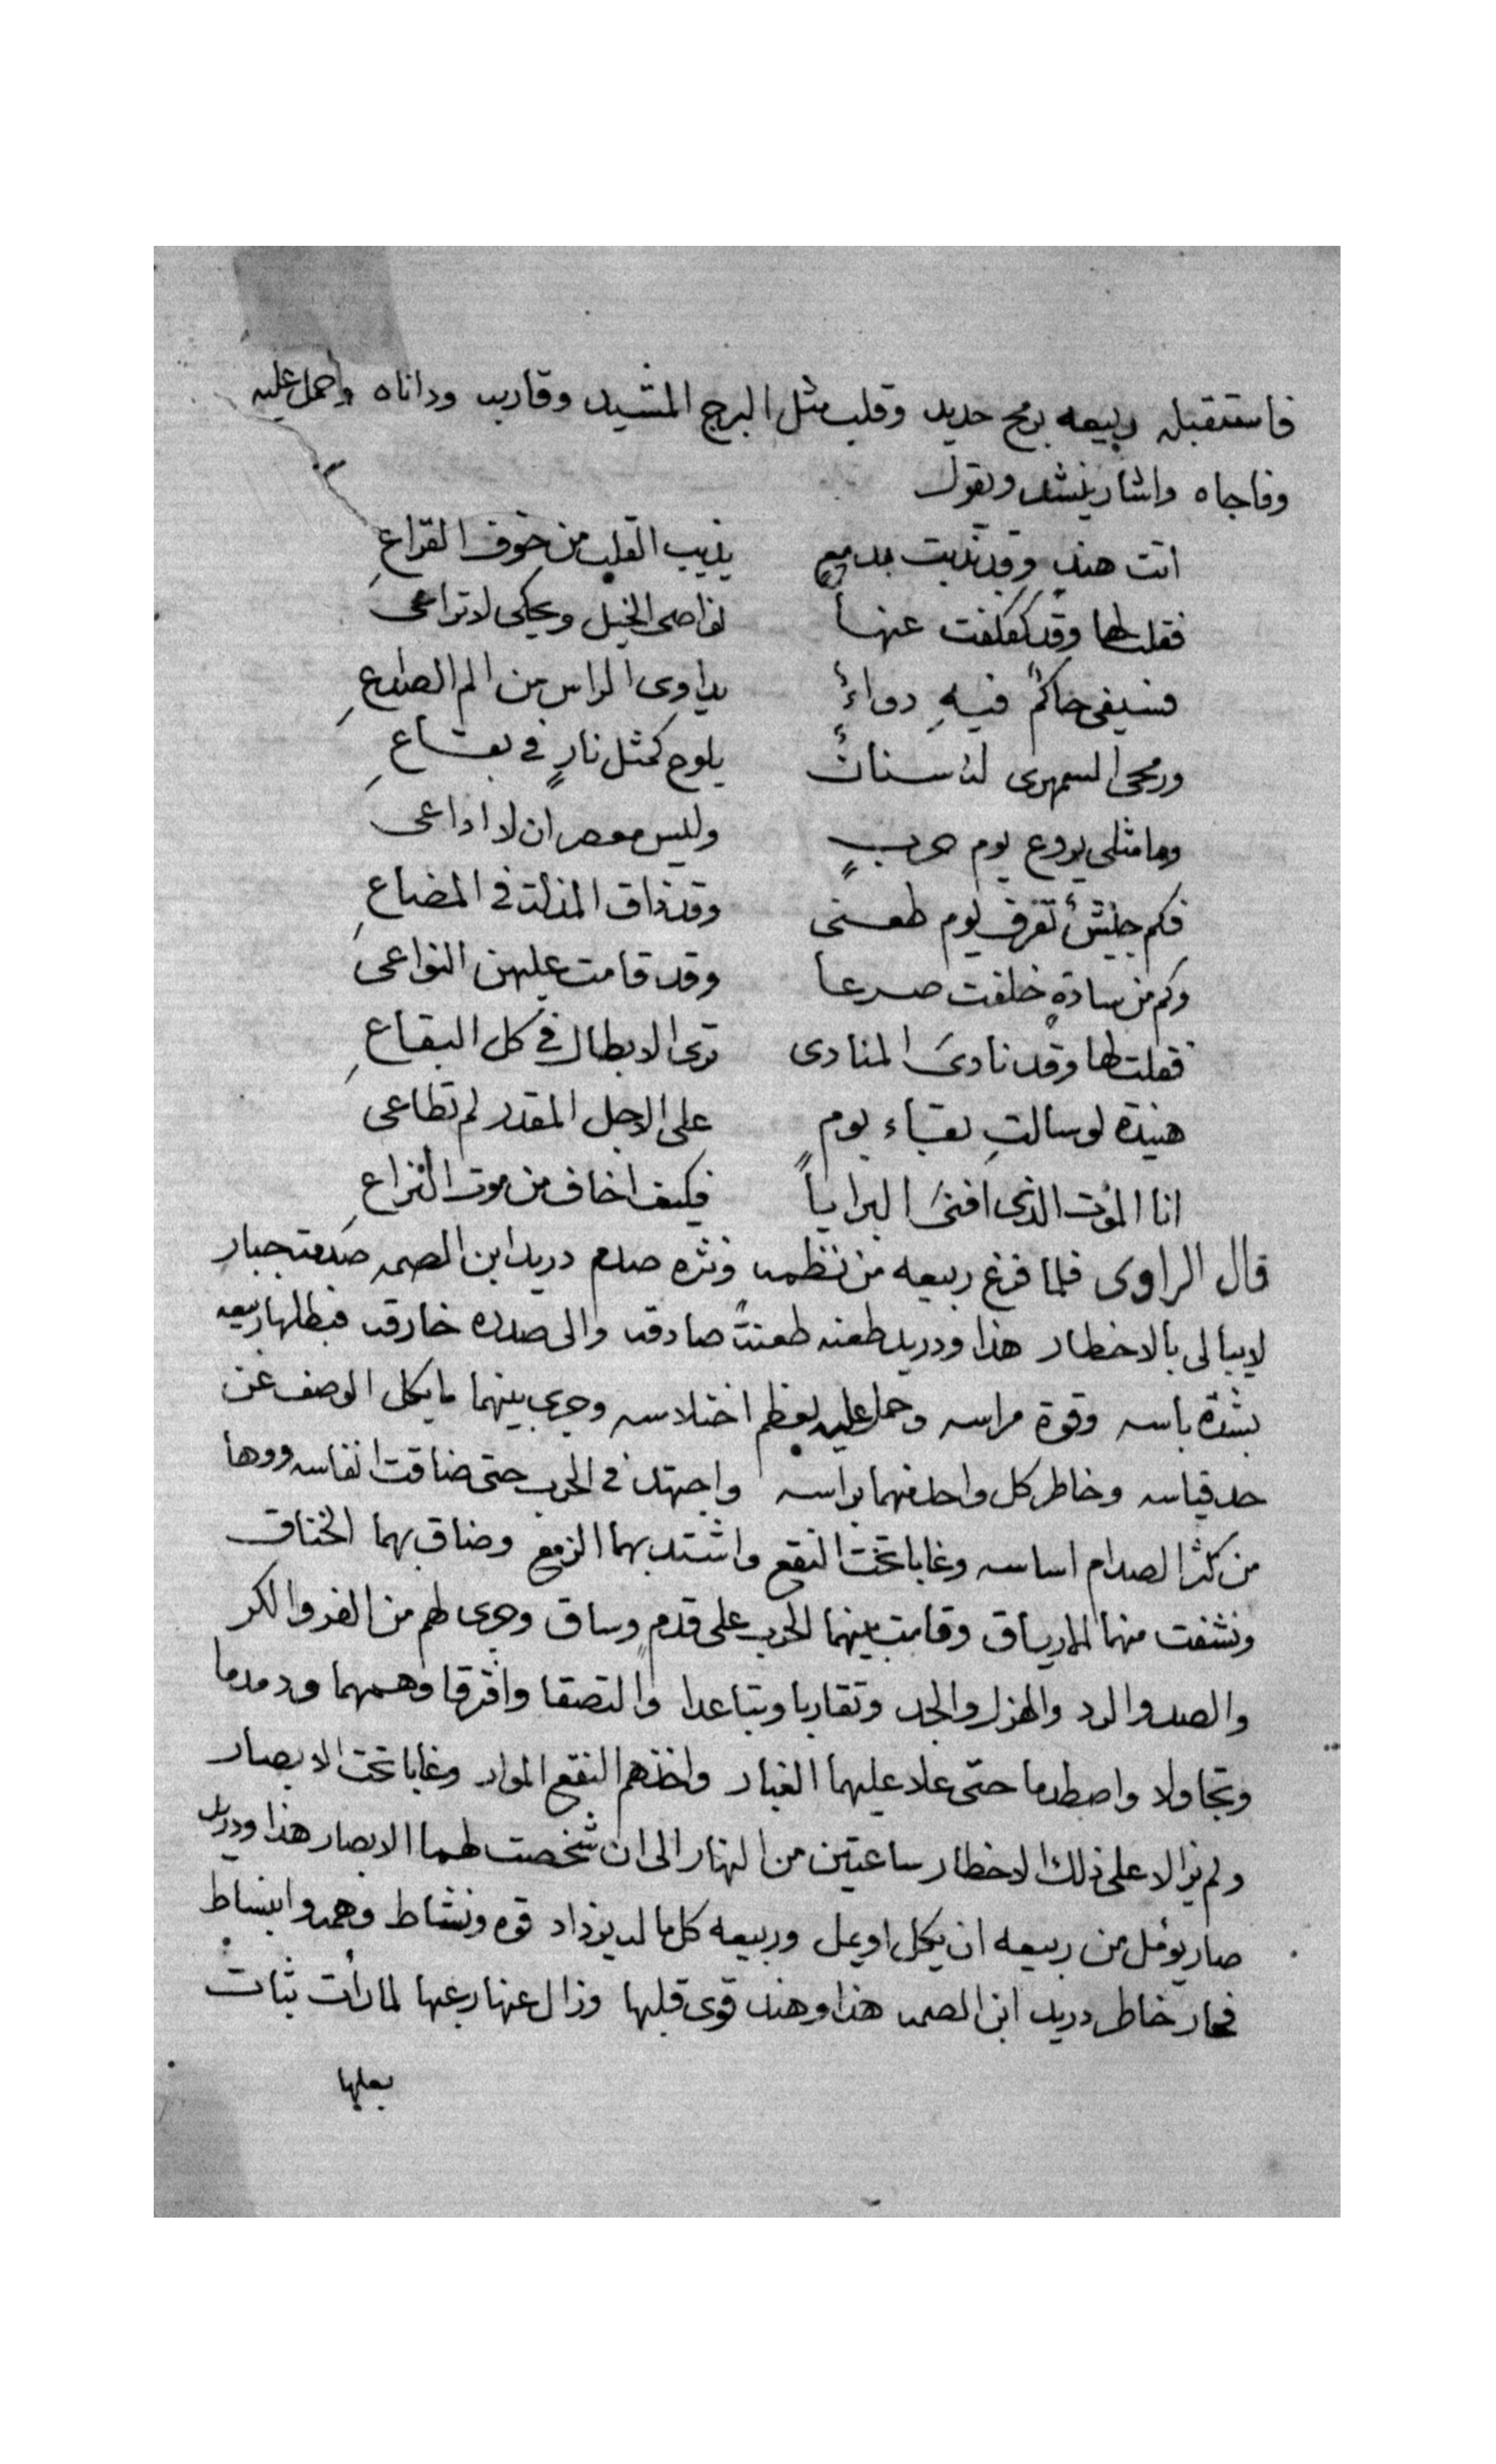 فاستقبله ربيعه برمح حديد وقلب مثل البرج المشيد وقاربه وداناه واحمل عليه
وفاجاه واشار ينشد ويقول
اتت هند وقد ندبت بدمع يذيب القلب من خوف القراع
فقلت لها وقد كفكفت عنها نواصى الخيل ويحكى لا تراعى
فسيفى حاكم فيه دواء يداوى الراس من الم الصداع
ورمحى السمهرى له سنان يلوح كمثل نار فى يفاع
وما مثلى يروع يوم حرب وليس ان لا اداعى
فكم جيش تفرق يوم طعنى وقد ذاق المذلة فى المضاع
وكم من سادة خلفت صرعا وقد قامت عليهن النواعى
فقلت لها وقد نادى المنادى ترى الابطال فى كل البقاع
هنيدة لو سالت بقاء يوم على الاجل المقدر لم تطاعى
انا الموت الذى افنى البرايا فكيف اخاف من موت النزاع
قال الراوى فلما فرغ ربيعه من نظمه ونثره صدم دريد ابن الصمه صدمة جبار
لا يبالى بالاخطار هذا ودريد طعنه طعنة صادقه والى صدره خارقه فبطلها ربيعه
بشدة باسه وقوة مراسه وحمل عليه بعظم اختلاسه وجرى بينهما ما يكل الوصف عن
حد قياسه وخاطر كل واحد منهما براسه واجتهد فى الحرب حتى ضاقت انفاسه ووها
من كثر الصدام اساسه وغابا تحت النقع واشتد بهما الزمع وضاق بهما الخناق
ونشفت منهما الارياق وقامت بينهما الحرب على قدم وساق وجرى لهم من الفر والكر
والصد والرد والهزل والجد وتقاربا وتباعدا والتصقا وافترقا وهمهما ودمدما
وتجاولا واصطدما حتى علا عليهما الغبار واخذهم النقع الموار وغابا تحت الابصار
ولم يزالا على ذلك الاخطار ساعتين من النهار الى ان شخصت لهما الابصار هذا ودريد
صار يومل من ربيعه ان يكل او يمل وربيعه كل ما له يزداد قوه ونشاط وهمه وانبساط
فحار خاطر دريد ابن الصمه هذا وهند قوى قلبها وزال عنها رعبها لما رأت ثبات
بعلها